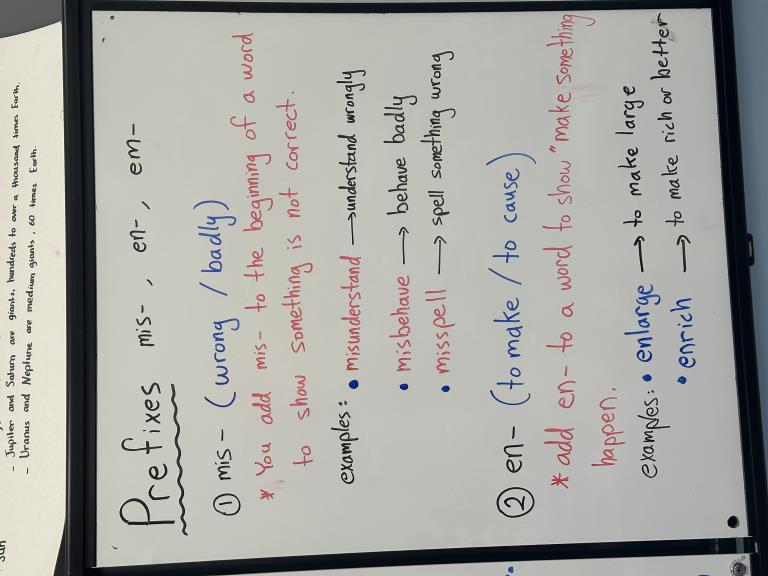 - Jupiter and Saturn are giants, hundreds to over a thousand times Earth.
- Uranus and Neptune are medium giants, 60 times Earth.
Prefixes mis-, en-, em-
① mis- (wrong / badly)
* You add mis- to the beginning of a word
to show something is not correct.
examples: • misunderstand → understand wrongly
• misbehave → behave badly
• misspell → spell something wrong
② en- (to make / to cause)
* add en- to a word to show "make something
happen.
examples: • enlarge → to make large
• enrich → to make rich or better